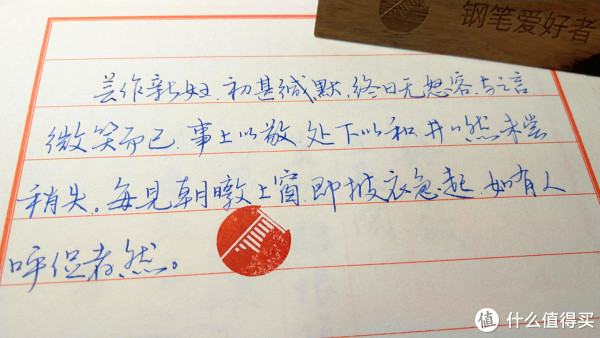 钢笔爱好者
芸作新妇,初甚缄默,终日无怒容,与之言,
微笑而已.事上以敬,处下以和,井以然未尝
稍失。每见朝暾上窗,即披衣急起,如有人
呼促者然。
值 什么值得买